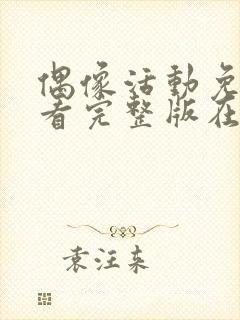 偶像活動免
看完整版在
袁汪东